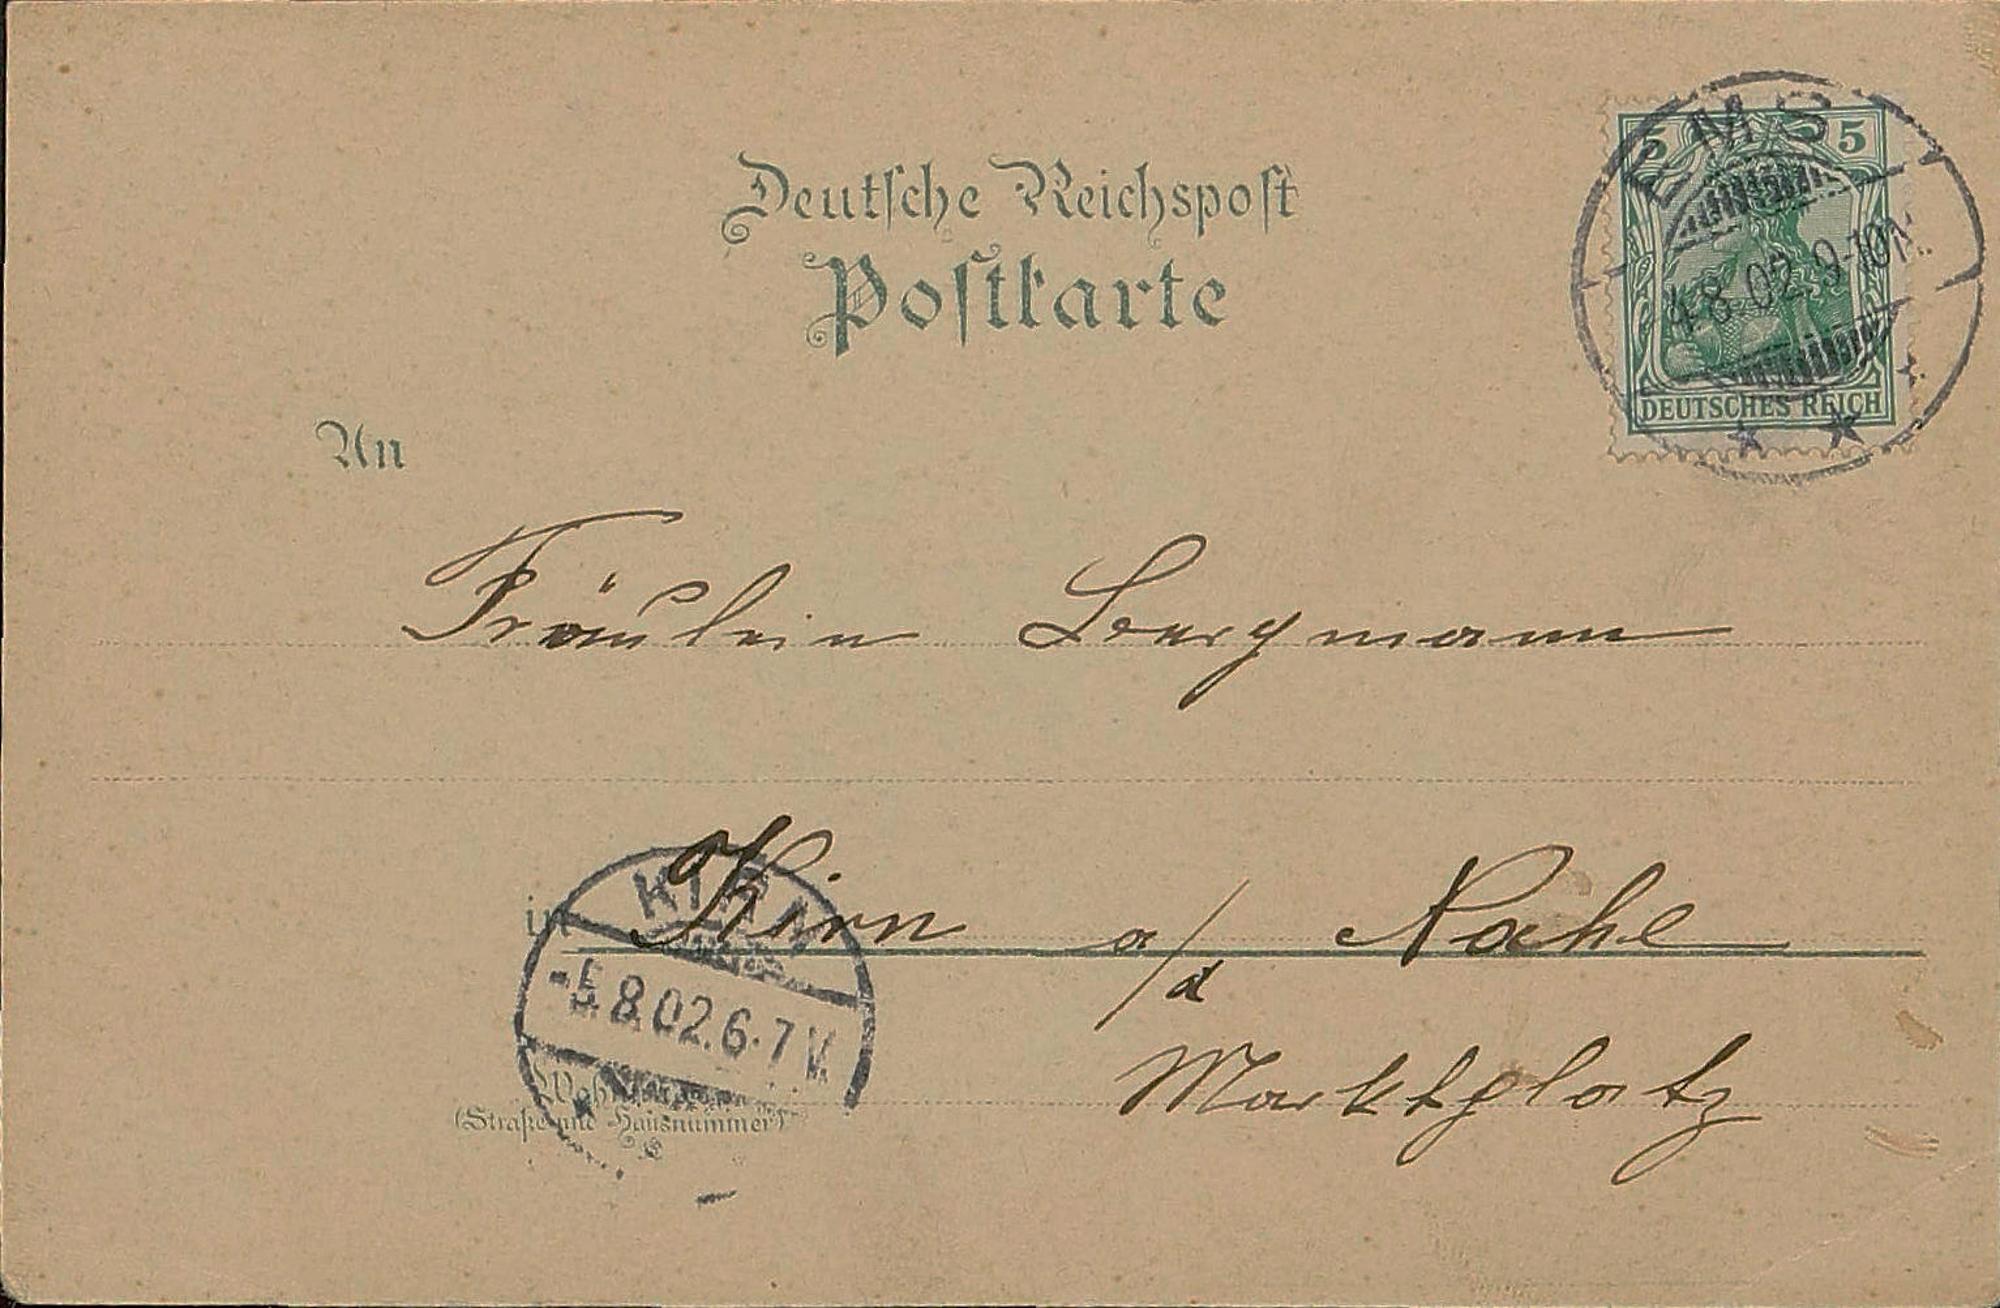 Deutsche Reichspost
Postkarte
5 5
DEUTSCHES REICH
EMS
4.8.02. 9-10
An
Fräulein Bergmann
in Kirn a/d Nahe
KIRN
-5.8.02. 6-7 V.
Marktplatz
Wohnung
(Straße und Hausnummer)